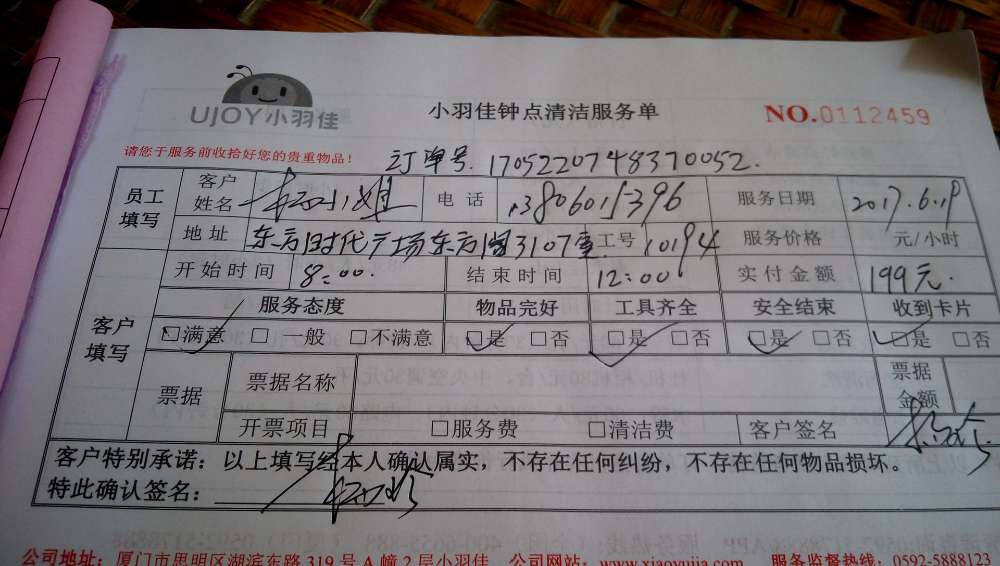 UJOY小羽佳
小羽佳钟点清洁服务单
NO.0112459
请您于服务前收拾好您的贵重物品!
订单号.1705220748370052.
员工填写
客户姓名 小姐 电话 13806015396 服务日期 2017.6.19
地址 东方时代广场东方阁3107室 工号 10194 服务价格 元/小时
开始时间 8:00. 结束时间 12:00 实付金额 199元.
客户填写
服务态度 物品完好 工具齐全 安全结束 收到卡片
□满意 □一般 □不满意 □是 □否 □是 □否 □是 □否 □是 □否
票据 票据名称 票据金额
开票项目 □服务费 □清洁费 客户签名
客户特别承诺：以上填写经本人确认属实，不存在任何纠纷，不存在任何物品损坏。
特此确认签名：
公司地址：厦门市思明区湖滨东路319号A幢2层小羽佳 公司网站：www.xiaoyujia.com 服务监督热线：0592-5888123